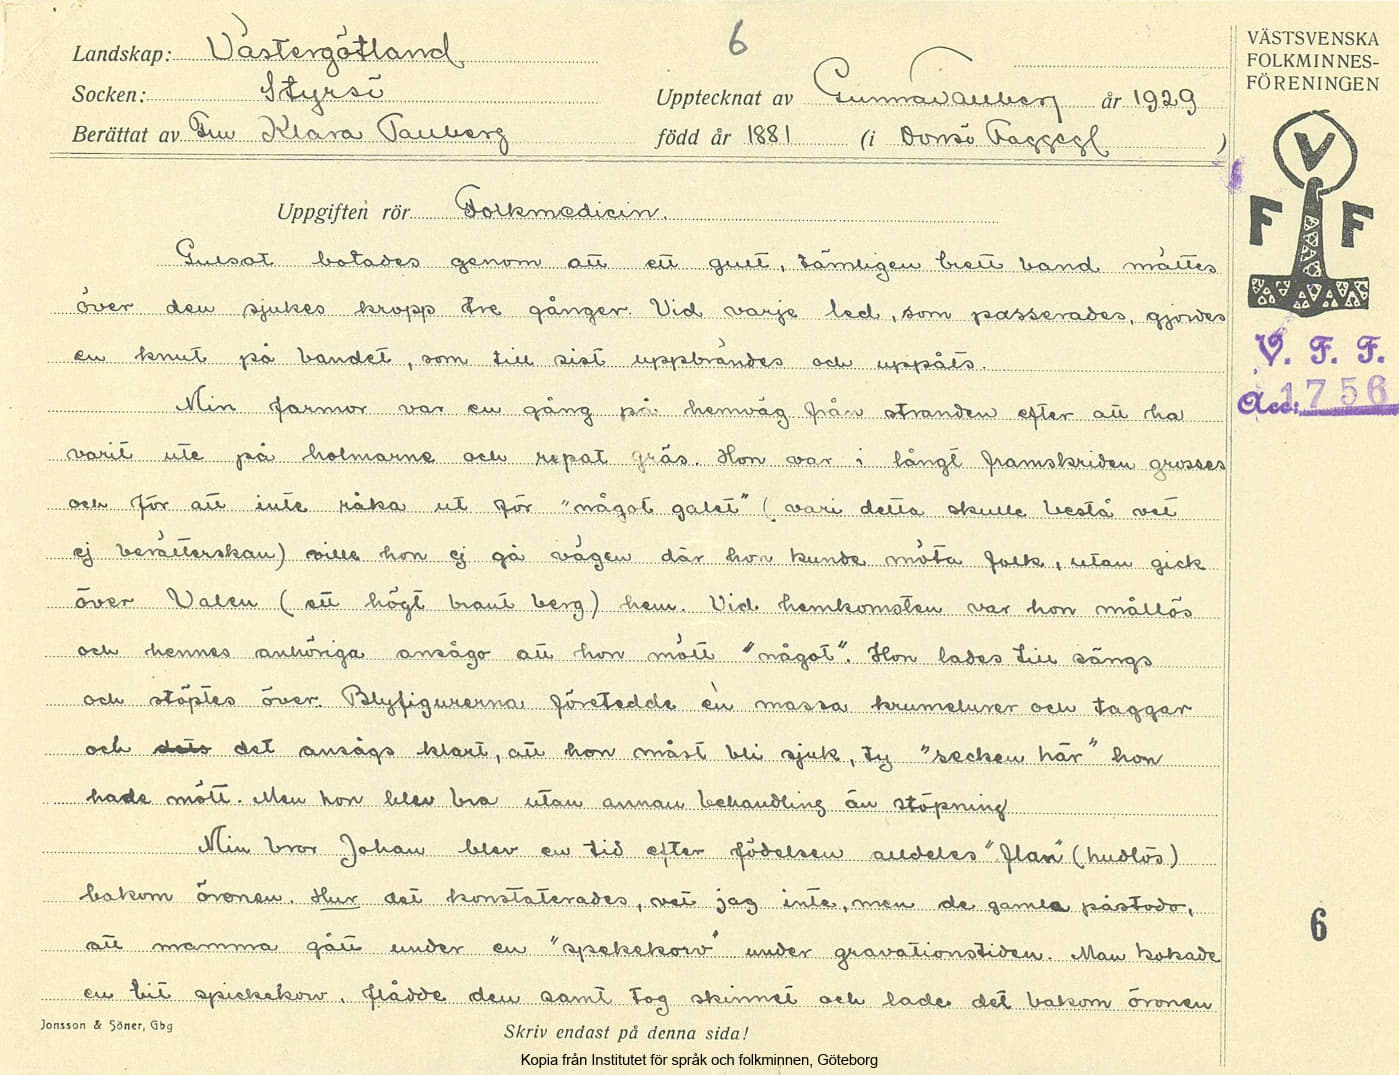 6
VÄSTSVENSKA
FOLKMINNES-
FÖRENINGEN
Landskap: Västergötland
Socken: Styrsö
Upptecknat av Gunnar Tauberg år 1929
Berättat av Fru Klara Tauberg född år 1881 (i Donsö Faggegl )
V
F F
V. F. F.
Acc: 1756
Uppgiften rör Folkmedicin.
Gulsot botades genom att ett gult, tämligen brett band mättes
över den sjukes kropp tre gånger. Vid varje led, som passerades, gjordes
en knut på bandet, som till sist uppbrändes och uppåts.
Min farmor var en gång på hemväg från stranden efter att ha
varit ute på holmarne och repat gräs. Hon var i långt framskriden grosses
och för att inte råka ut för "något galet" (vari detta skulle bestå vet
ej berätterskan) ville hon ej gå vägen där hon kunde möta folk, utan gick
över Valen (ett högt brant berg) hem. Vid hemkomsten var hon mållös
och hennes anhöriga ansågo att hon mött "något". Hon lades till sängs
och stöptes över. Blyfigurerna företedde en massa krumelurer och taggar
och det ansågs klart, att hon måst bli sjuk, ty "secken här" hon
hade mött. Men hon blev bra utan annan behandling än stöpning
Min bror Johan blev en tid efter födelsen alldeles "flan" (hudlös)
bakom öronen. Hur det konstaterades, vet jag inte, men de gamla påstodo,
att mamma gått under en "spekekorv" under gravationstiden. Man kokade
en bit spickekorv, flådde den samt tog skinnet och lade det bakom öronen
6
Jonsson & Söner, Gbg
Skriv endast på denna sida!
Kopia från Institutet för språk och folkminnen, Göteborg